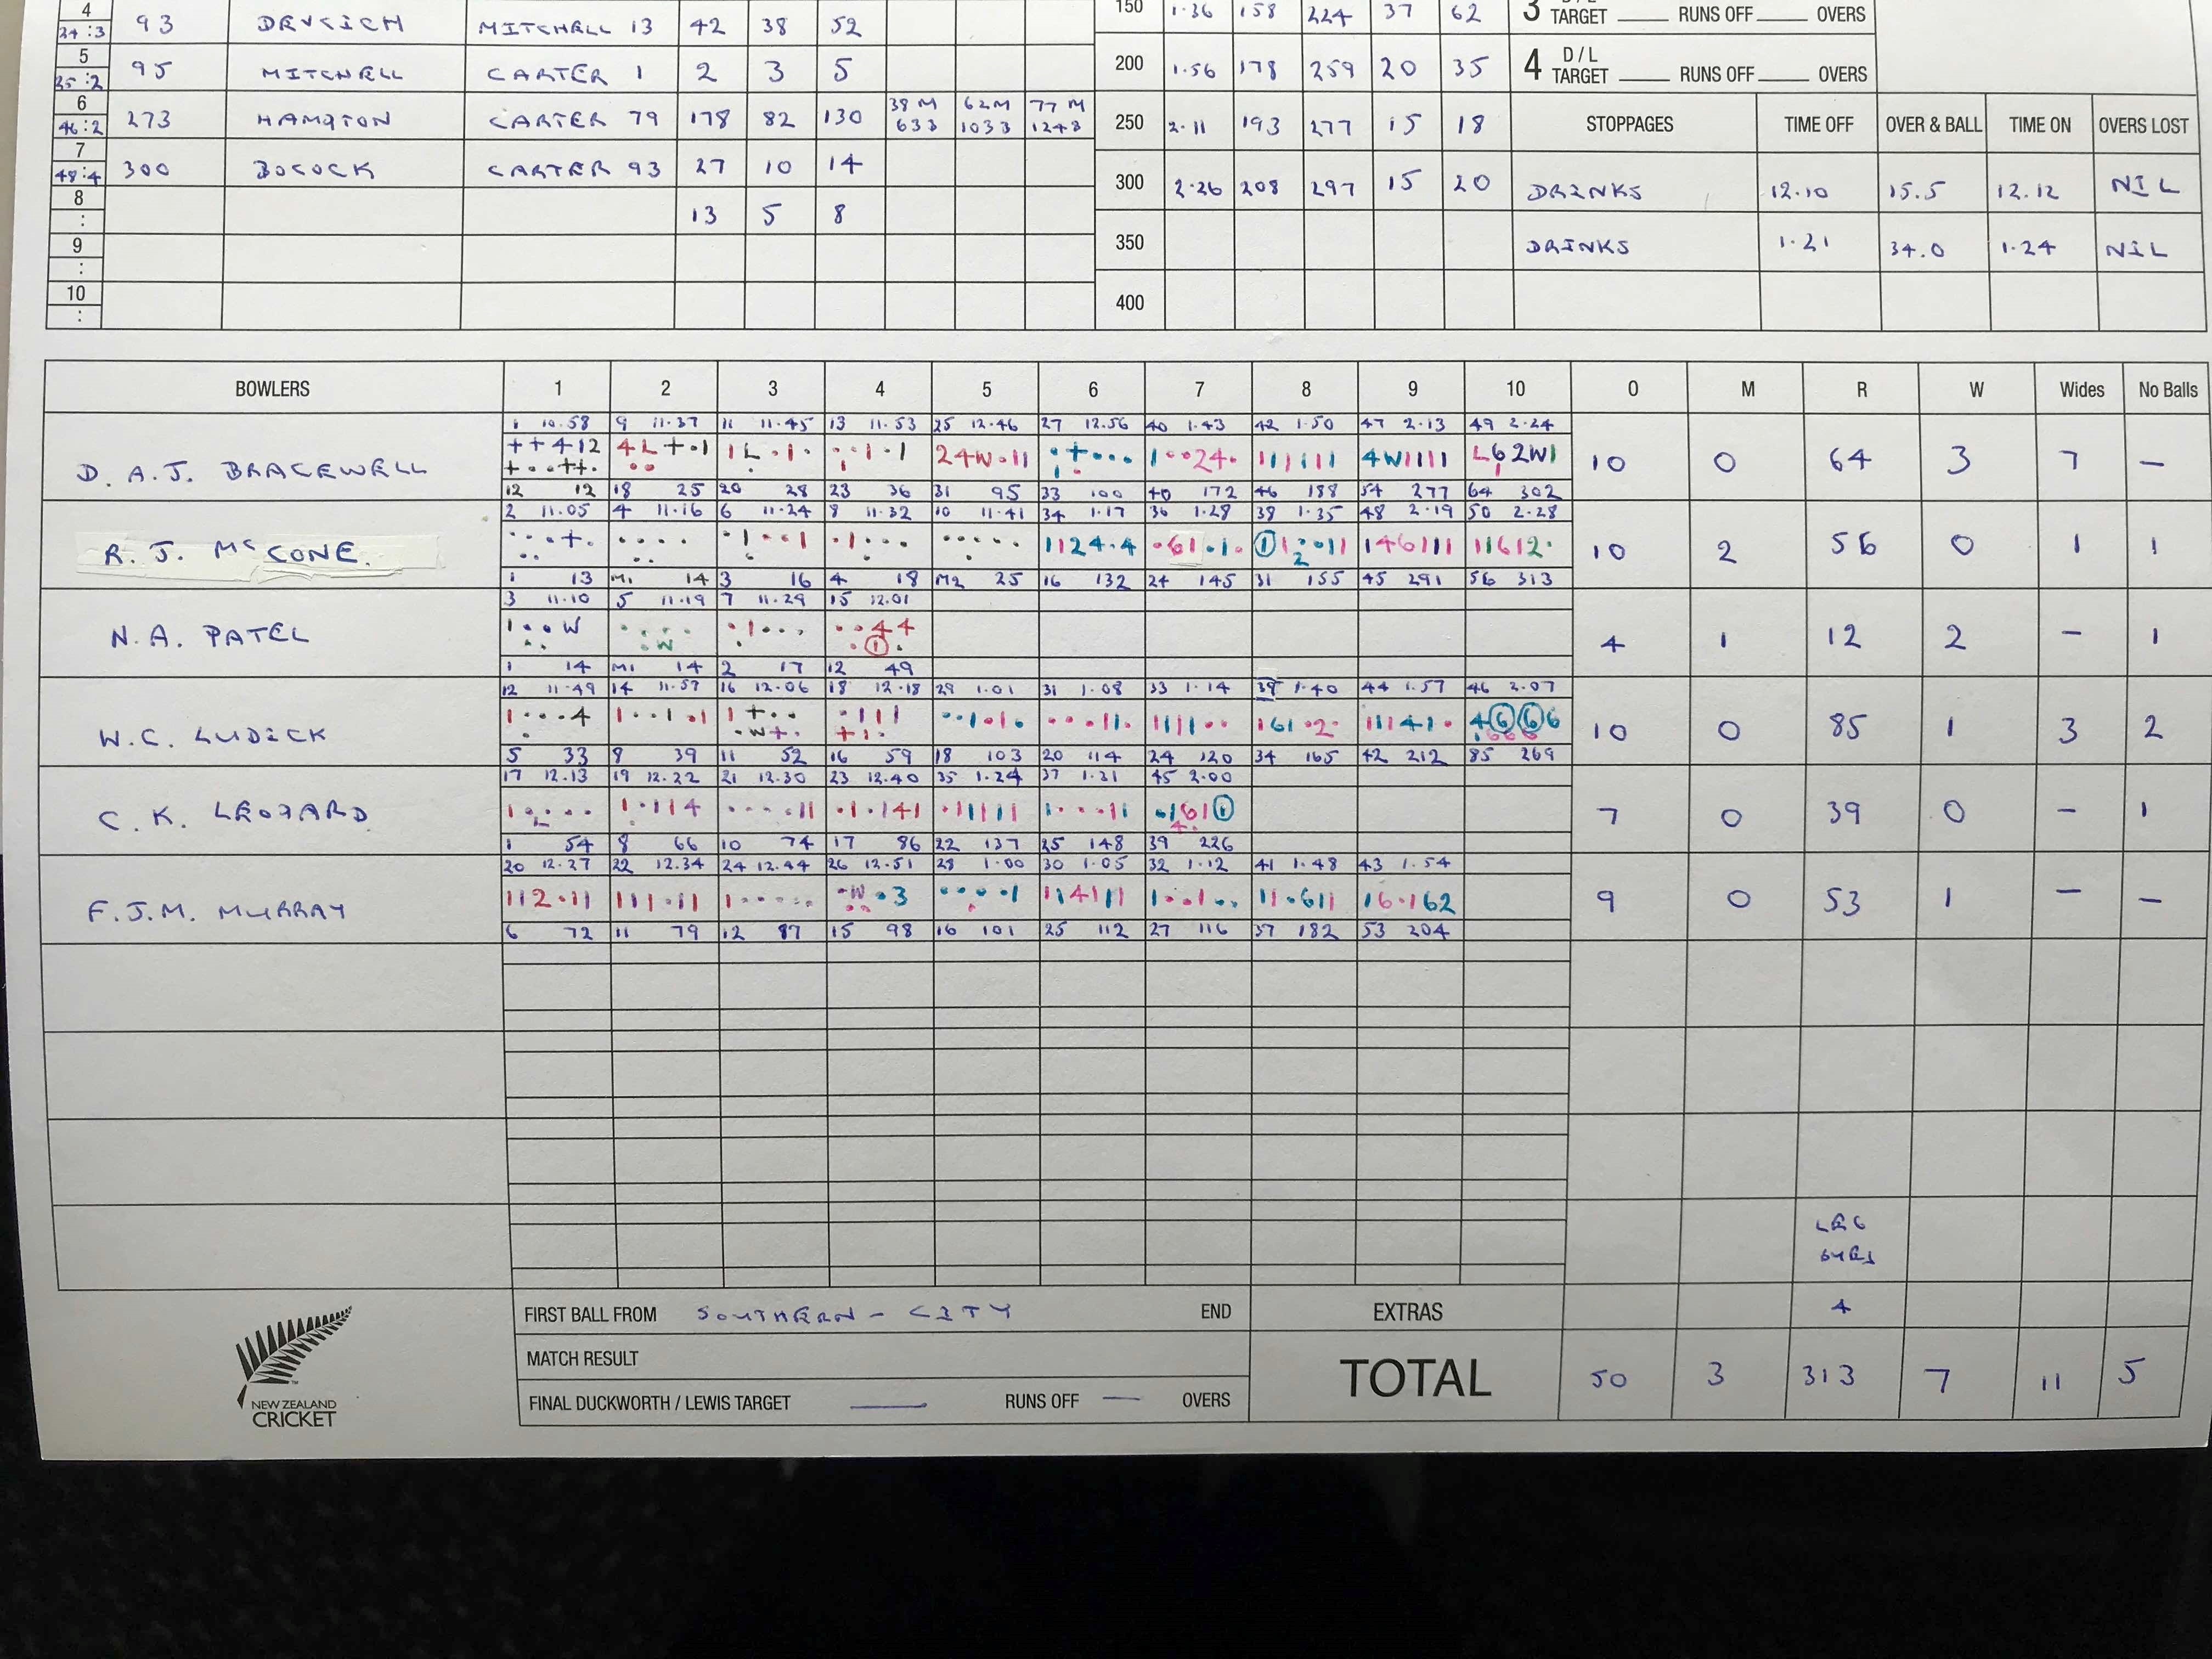 4 93 DEVCICH MITCHELL 13 42 38 52 150 1.36 158 224 37 62 3 TARGET RUNS OFF OVERS
24:3
5 95 MITCHELL CARTER 1 2 3 5 200 1.56 178 259 20 35 4 D/L TARGET RUNS OFF OVERS
25:2
6 273 HAMPTON CARTER 79 178 82 130 38M 62M 77M 250 2.11 193 277 15 18 STOPPAGES TIME OFF OVER & BALL TIME ON OVERS LOST
46:2 633 1033 1248
7 300 BOCOCK CARTER 93 27 10 14 300 2.26 208 297 15 20 DRINKS 12.10 15.5 12.12 NIL
48:4
8 13 5 8
:
9 350 DRINKS 1.21 34.0 1.24 NIL
:
10 400
:
BOWLERS 1 2 3 4 5 6 7 8 9 10 O M R W Wides No Balls
1 10.58 9 11.37 11 11.45 13 11.53 25 12.46 27 12.56 40 1.43 42 1.50 47 2.13 49 2.24
D. A. J. BRACEWELL ++412 4L+·1 1L·1· ··1·1 24W·11 ·+··· 1··24· 111111 4W1111 L62W1 10 0 64 3 7 –
+··++· ·· · 1 1· 1
12 12 18 25 20 28 23 36 31 95 33 100 40 172 46 188 54 277 64 302
2 11.05 4 11.16 6 11.24 8 11.32 10 11.41 34 1.17 36 1.28 38 1.35 48 2.19 50 2.28
R. J. McCONE. ···+· ···· ·1··1 ·1··· ····· 1124·4 ·61·1· 11··11 146111 11612· 10 2 56 0 1 1
·· ·· · · · 2
1 13 M1 14 3 16 4 18 M2 25 16 132 24 145 31 155 45 291 56 313
3 11.10 5 11.19 7 11.29 15 12.01
N. A. PATEL 1··W ···· ·1··· ··44 4 1 12 2 – 1
·· ·W · ·1·
1 14 M1 14 2 17 12 49
12 11.49 14 11.57 16 12.06 18 12.18 29 1.01 31 1.08 33 1.14 39 1.40 44 1.57 46 2.07
W.C. LUDICK 1···4 1··1·1 1+·· ·111 ··1·1· ···11· 1111·· 161·2· 11141· 4666 10 0 85 1 3 2
· ·W+· +1· ·666
5 33 8 39 11 52 16 59 18 103 20 114 24 120 34 165 42 212 85 269
17 12.13 19 12.22 21 12.30 23 12.40 35 1.24 37 1.31 45 2.00
C. K. LEOPARD 1···· 1·114 ····11 ·1·141 ·11111 1···11 ·1611 7 0 39 0 – 1
L 4·
1 54 8 66 10 74 17 86 22 137 25 148 39 226
20 12.27 22 12.34 24 12.44 26 12.51 28 1.00 30 1.05 32 1.12 41 1.48 43 1.54
F.J.M. MURRAY 112·11 111·11 1····· ·W·3 ·····1 114111 1··1·· 11·611 16·162 9 0 53 1 – –
··
6 72 11 79 12 87 15 98 16 101 25 112 27 116 37 182 53 204
LEG
BYES
FIRST BALL FROM SOUTHERN – CITY END EXTRAS 4
MATCH RESULT
TOTAL 50 3 313 7 11 5
FINAL DUCKWORTH / LEWIS TARGET — RUNS OFF — OVERS
NEW ZEALAND
CRICKET